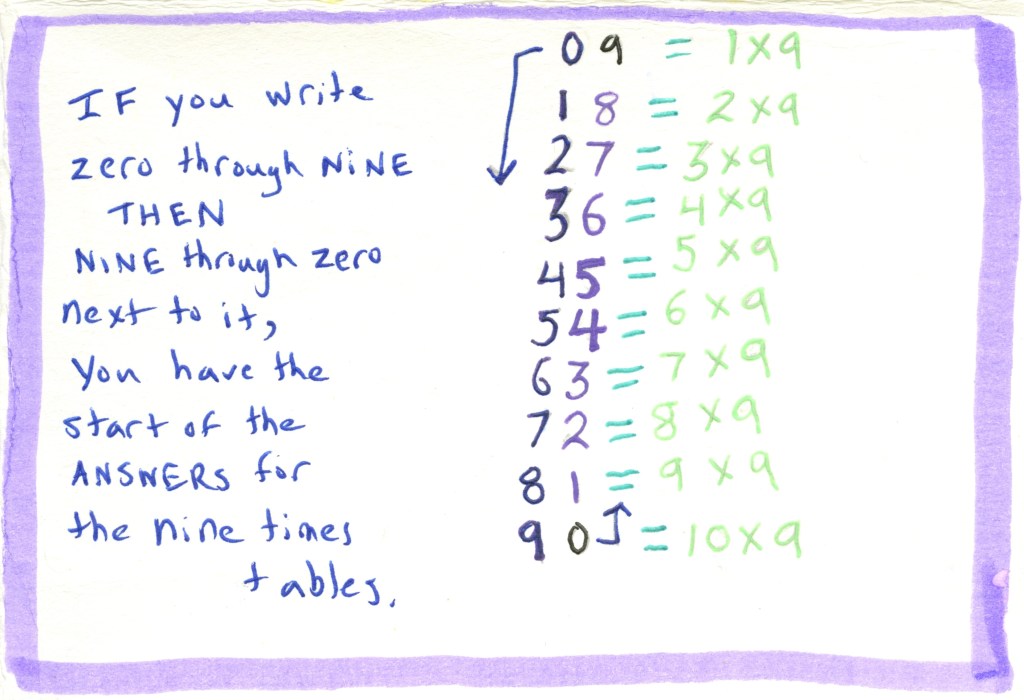 IF you write
zero through NiNE
THEN
NiNE through zero
next to it,
You have the
start of the
ANSWERS for
the nine times
tables.
09 = 1x9
18 = 2x9
27 = 3x9
36 = 4x9
45 = 5x9
54 = 6x9
63 = 7x9
72 = 8x9
81 = 9x9
90 = 10x9